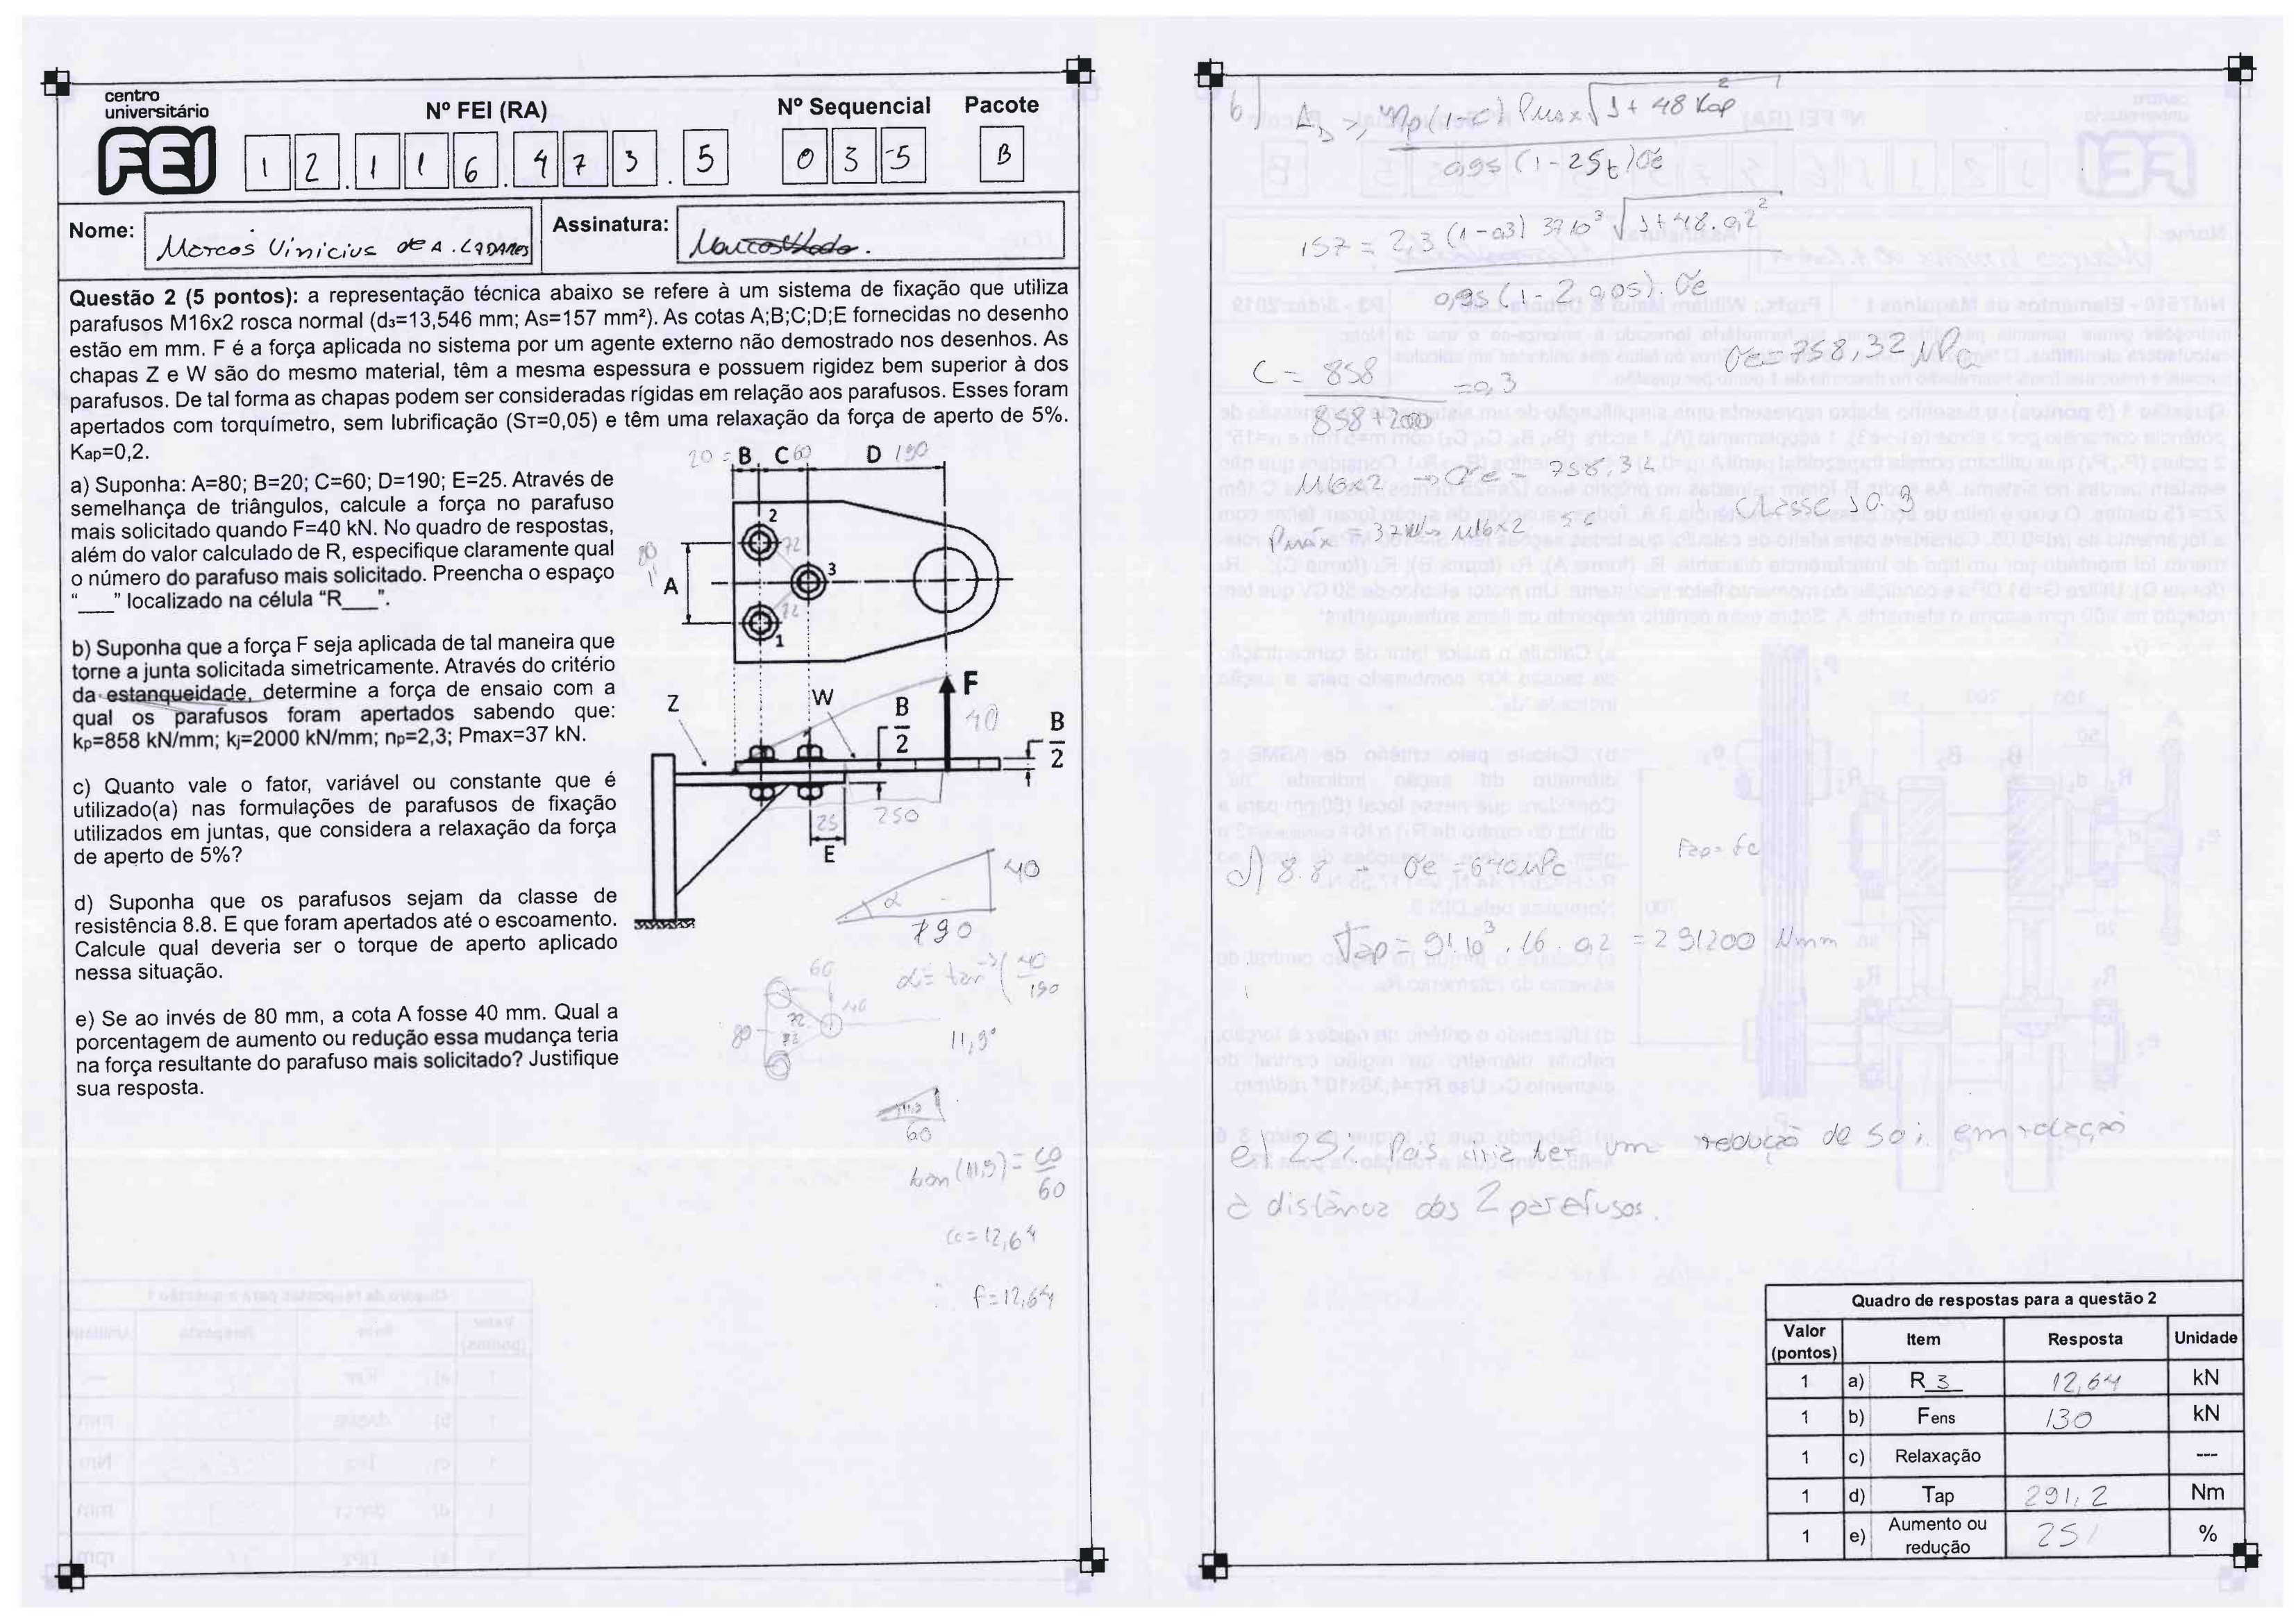 centro
universitário
FEI
Nº FEI (RA)
Nº Sequencial
Pacote
12.116.473.5
035
B
Nome:
Marcos Vinicius de A. LADARES
Assinatura:
Questão 2 (5 pontos): a representação técnica abaixo se refere à um sistema de fixação que utiliza
parafusos M16x2 rosca normal (d₃=13,546 mm; As=157 mm²). As cotas A;B;C;D;E fornecidas no desenho
estão em mm. F é a força aplicada no sistema por um agente externo não demostrado nos desenhos. As
chapas Z e W são do mesmo material, têm a mesma espessura e possuem rigidez bem superior à dos
parafusos. De tal forma as chapas podem ser consideradas rígidas em relação aos parafusos. Esses foram
apertados com torquímetro, sem lubrificação (Sᴛ=0,05) e têm uma relaxação da força de aperto de 5%.
Kap=0,2.
a) Suponha: A=80; B=20; C=60; D=190; E=25. Através de
semelhança de triângulos, calcule a força no parafuso
mais solicitado quando F=40 kN. No quadro de respostas,
além do valor calculado de R, especifique claramente qual
o número do parafuso mais solicitado. Preencha o espaço
"___" localizado na célula "R___".
b) Suponha que a força F seja aplicada de tal maneira que
torne a junta solicitada simetricamente. Através do critério
da estanqueidade, determine a força de ensaio com a
qual os parafusos foram apertados sabendo que:
kp=858 kN/mm; kj=2000 kN/mm; np=2,3; Pmax=37 kN.
c) Quanto vale o fator, variável ou constante que é
utilizado(a) nas formulações de parafusos de fixação
utilizados em juntas, que considera a relaxação da força
de aperto de 5%?
d) Suponha que os parafusos sejam da classe de
resistência 8.8. E que foram apertados até o escoamento.
Calcule qual deveria ser o torque de aperto aplicado
nessa situação.
e) Se ao invés de 80 mm, a cota A fosse 40 mm. Qual a
porcentagem de aumento ou redução essa mudança teria
na força resultante do parafuso mais solicitado? Justifique
sua resposta.
20 = B C 60 D 190
2
72
3
80
A
72
1
Z
W
F
40
B
2
B
2
25
250
E
40
α
190
60
α = tan⁻¹(40
190
40
72
80
72
11,9°
11,9
60
tan (11,9) = co
60
co = 12,64
∴ f = 12,64
b) As ≥ np (1-c) Pmax √1 + 48 Kap²
0,95 (1 - 2St) σe
157 = 2,3 (1-0,3) 37 10³ √1 + 48 . 0,2²
0,95 (1 - 2 0,05). σe
σe = 758,32 MPa
C = 858 = 0,3
858 + 200
M16x2 → σe = 758,32
Classe 10.9
Pmáx = 37kN → M16x2
Fap = fe
d) 8.8 → σe = 640 MPa
Tap = 91.10³ . 16 . 0,2 = 291200 Nmm
e) 25% Pois iria ter uma redução de 50% em relação
à distância dos 2 parafusos.
Quadro de respostas para a questão 2
Valor (pontos) Item Resposta Unidade
1 a) R_3_ 12,64 kN
1 b) Fens 130 kN
1 c) Relaxação ---
1 d) Tap 291,2 Nm
1 e) Aumento ou redução 25 %